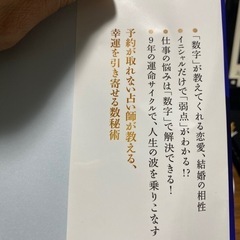 ●「数字」が教えてくれる恋愛、結婚の相性
●イニシャルだけで「弱点」がわかる!?
●仕事の悩みは「数字」で解決できる!
●9年の運命サイクルで、人生の波を乗りこなす
予約が取れない占い師が教える、
幸運を引き寄せる数秘術